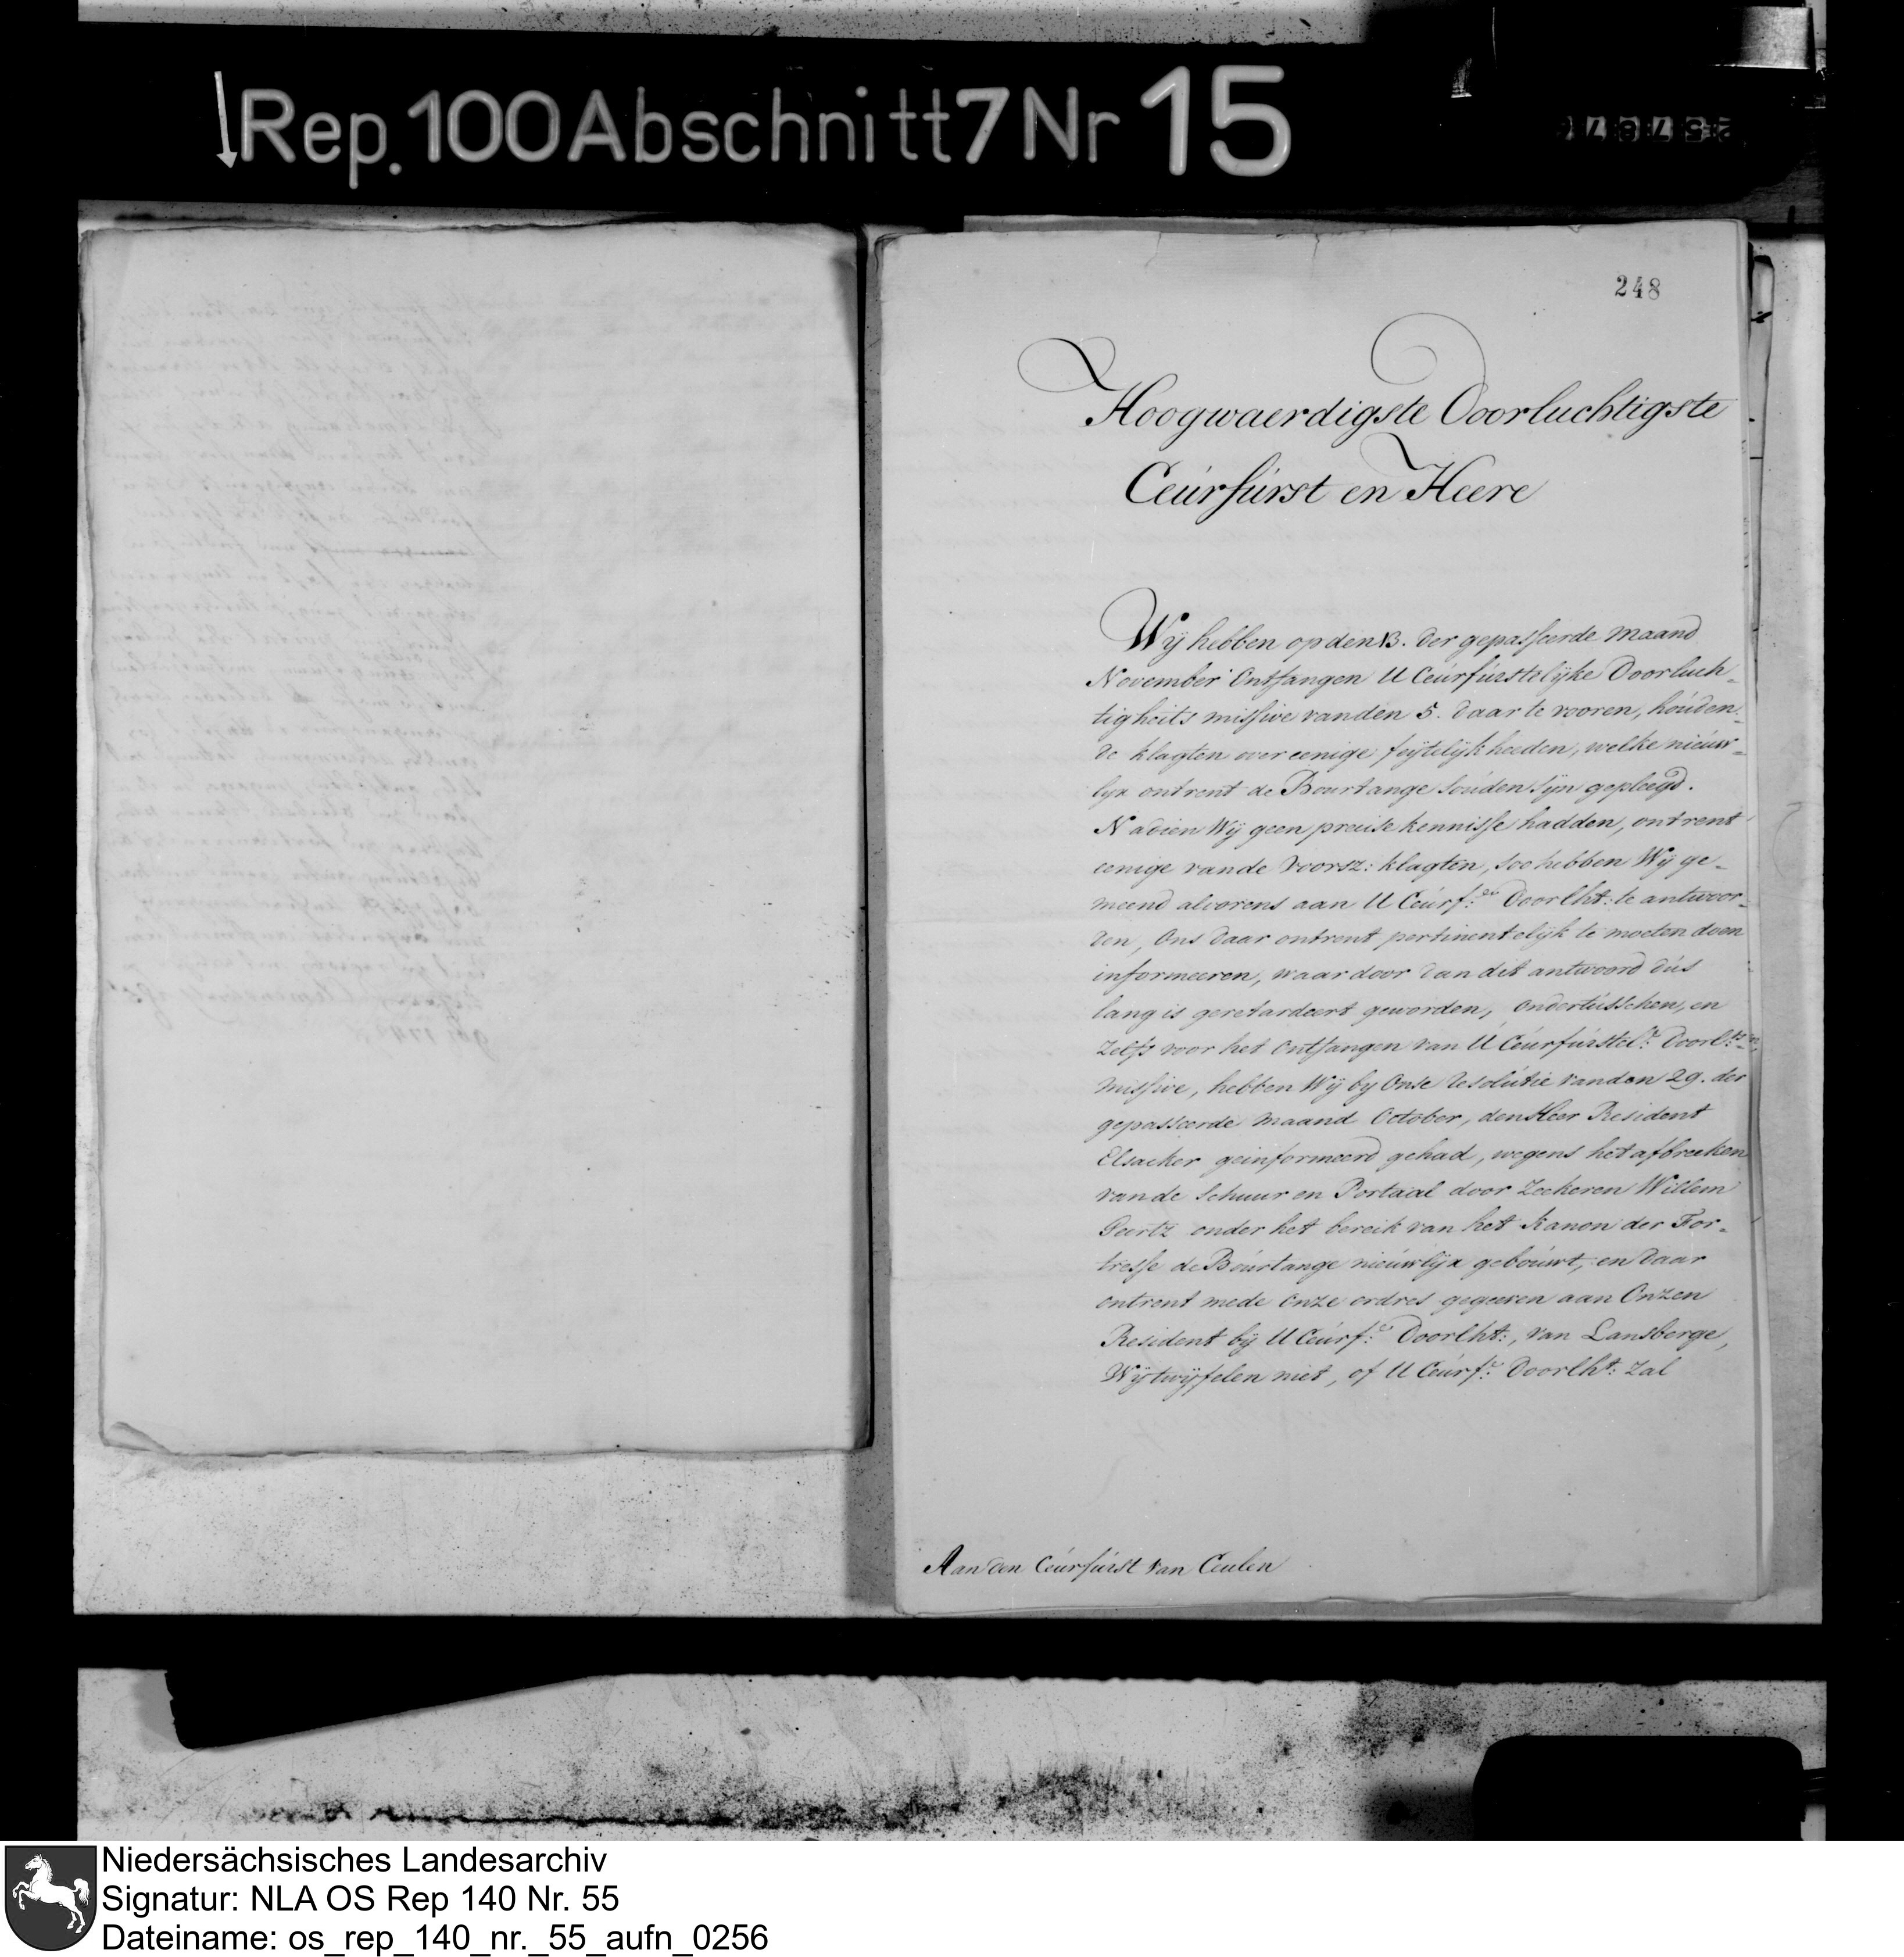 Rep. 100 Abschnitt 7 Nr 15
248
Hoogwaerdigste Doorluchtigste
Ceúrfúrst en Heere
Wij hebben op den 13. der gepasseerde maand
November Ontfangen U Ceúrfúrstelijke Doorluch-
tigheits missive van den 5. daar te vooren, hóuden-
de klagten over eenige feijtelijkheeden, welke nieúw-
lijx ontrent de Bourtange soúden sijn gepleegd.
Nadien Wij geen precise kennisse hadden, ontrent
eenige van de voorsz: klagten, soo hebben Wij ge-
meend alvorens aan U Ceúrf: Doorlht: te antwoor-
den, Ons daar ontrent pertinentelijk te moeten doen
informeeren, waar door dan dit antwoord dús
lang is geretardeert geworden, ondertússchen, en
Zelfs voor het ontfangen van U Ceúrfúrstel: Doorl:ts
missive, hebben Wij by Onse Resolútie van den 29. der
gepasseerde maand October, den Heer Resident
Elsacker geinformeerd gehad, wegens het afbreeken
van de Schuur en Portaal door Zeekeren Willem
Geertz onder het bereik van het Kanon der For-
tresse de Boúrtange nieúwlijx geboúwt, en daar
ontrent mede onze ordres gegeeven aan Onzen
Resident bij U Ceúrf:e Doorlht:, van Lansberge,
Wij twijfelen niet, of U Ceúrf:e Doorlht: Zal
Aan den Ceúrfúrst van Ceulen
Niedersächsisches Landesarchiv
Signatur: NLA OS Rep 140 Nr. 55
Dateiname: os_rep_140_nr._55_aufn_0256